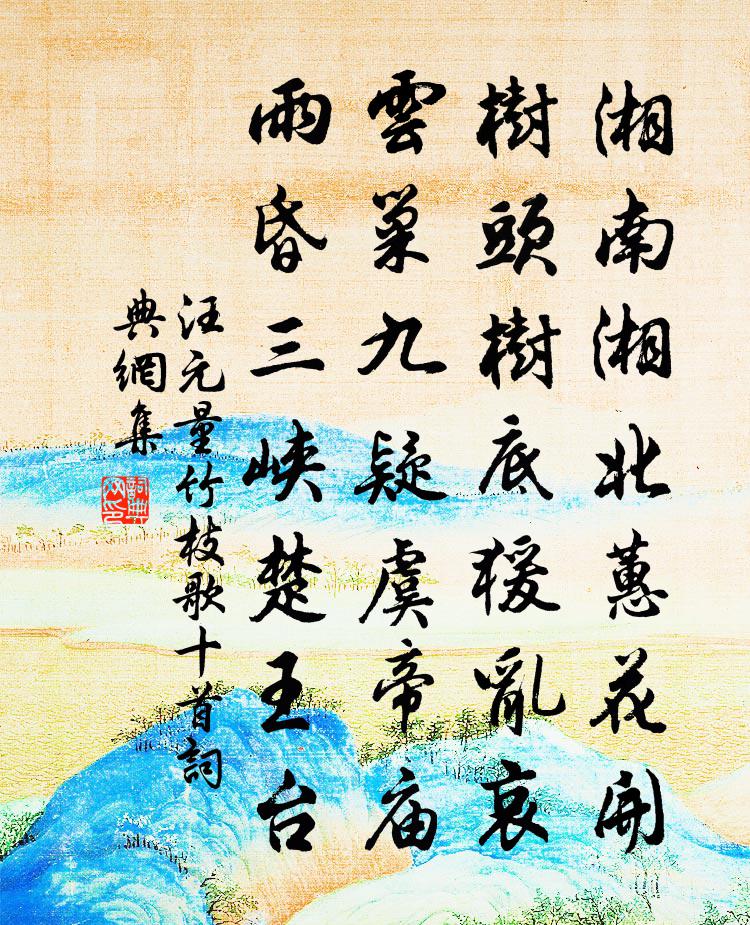 湘南湘北蕙花開
樹頭樹底猨亂哀
雲巢九疑虞帝庙
雨昏三峡楚王台
汪元量竹枝歌十首詞
典網集